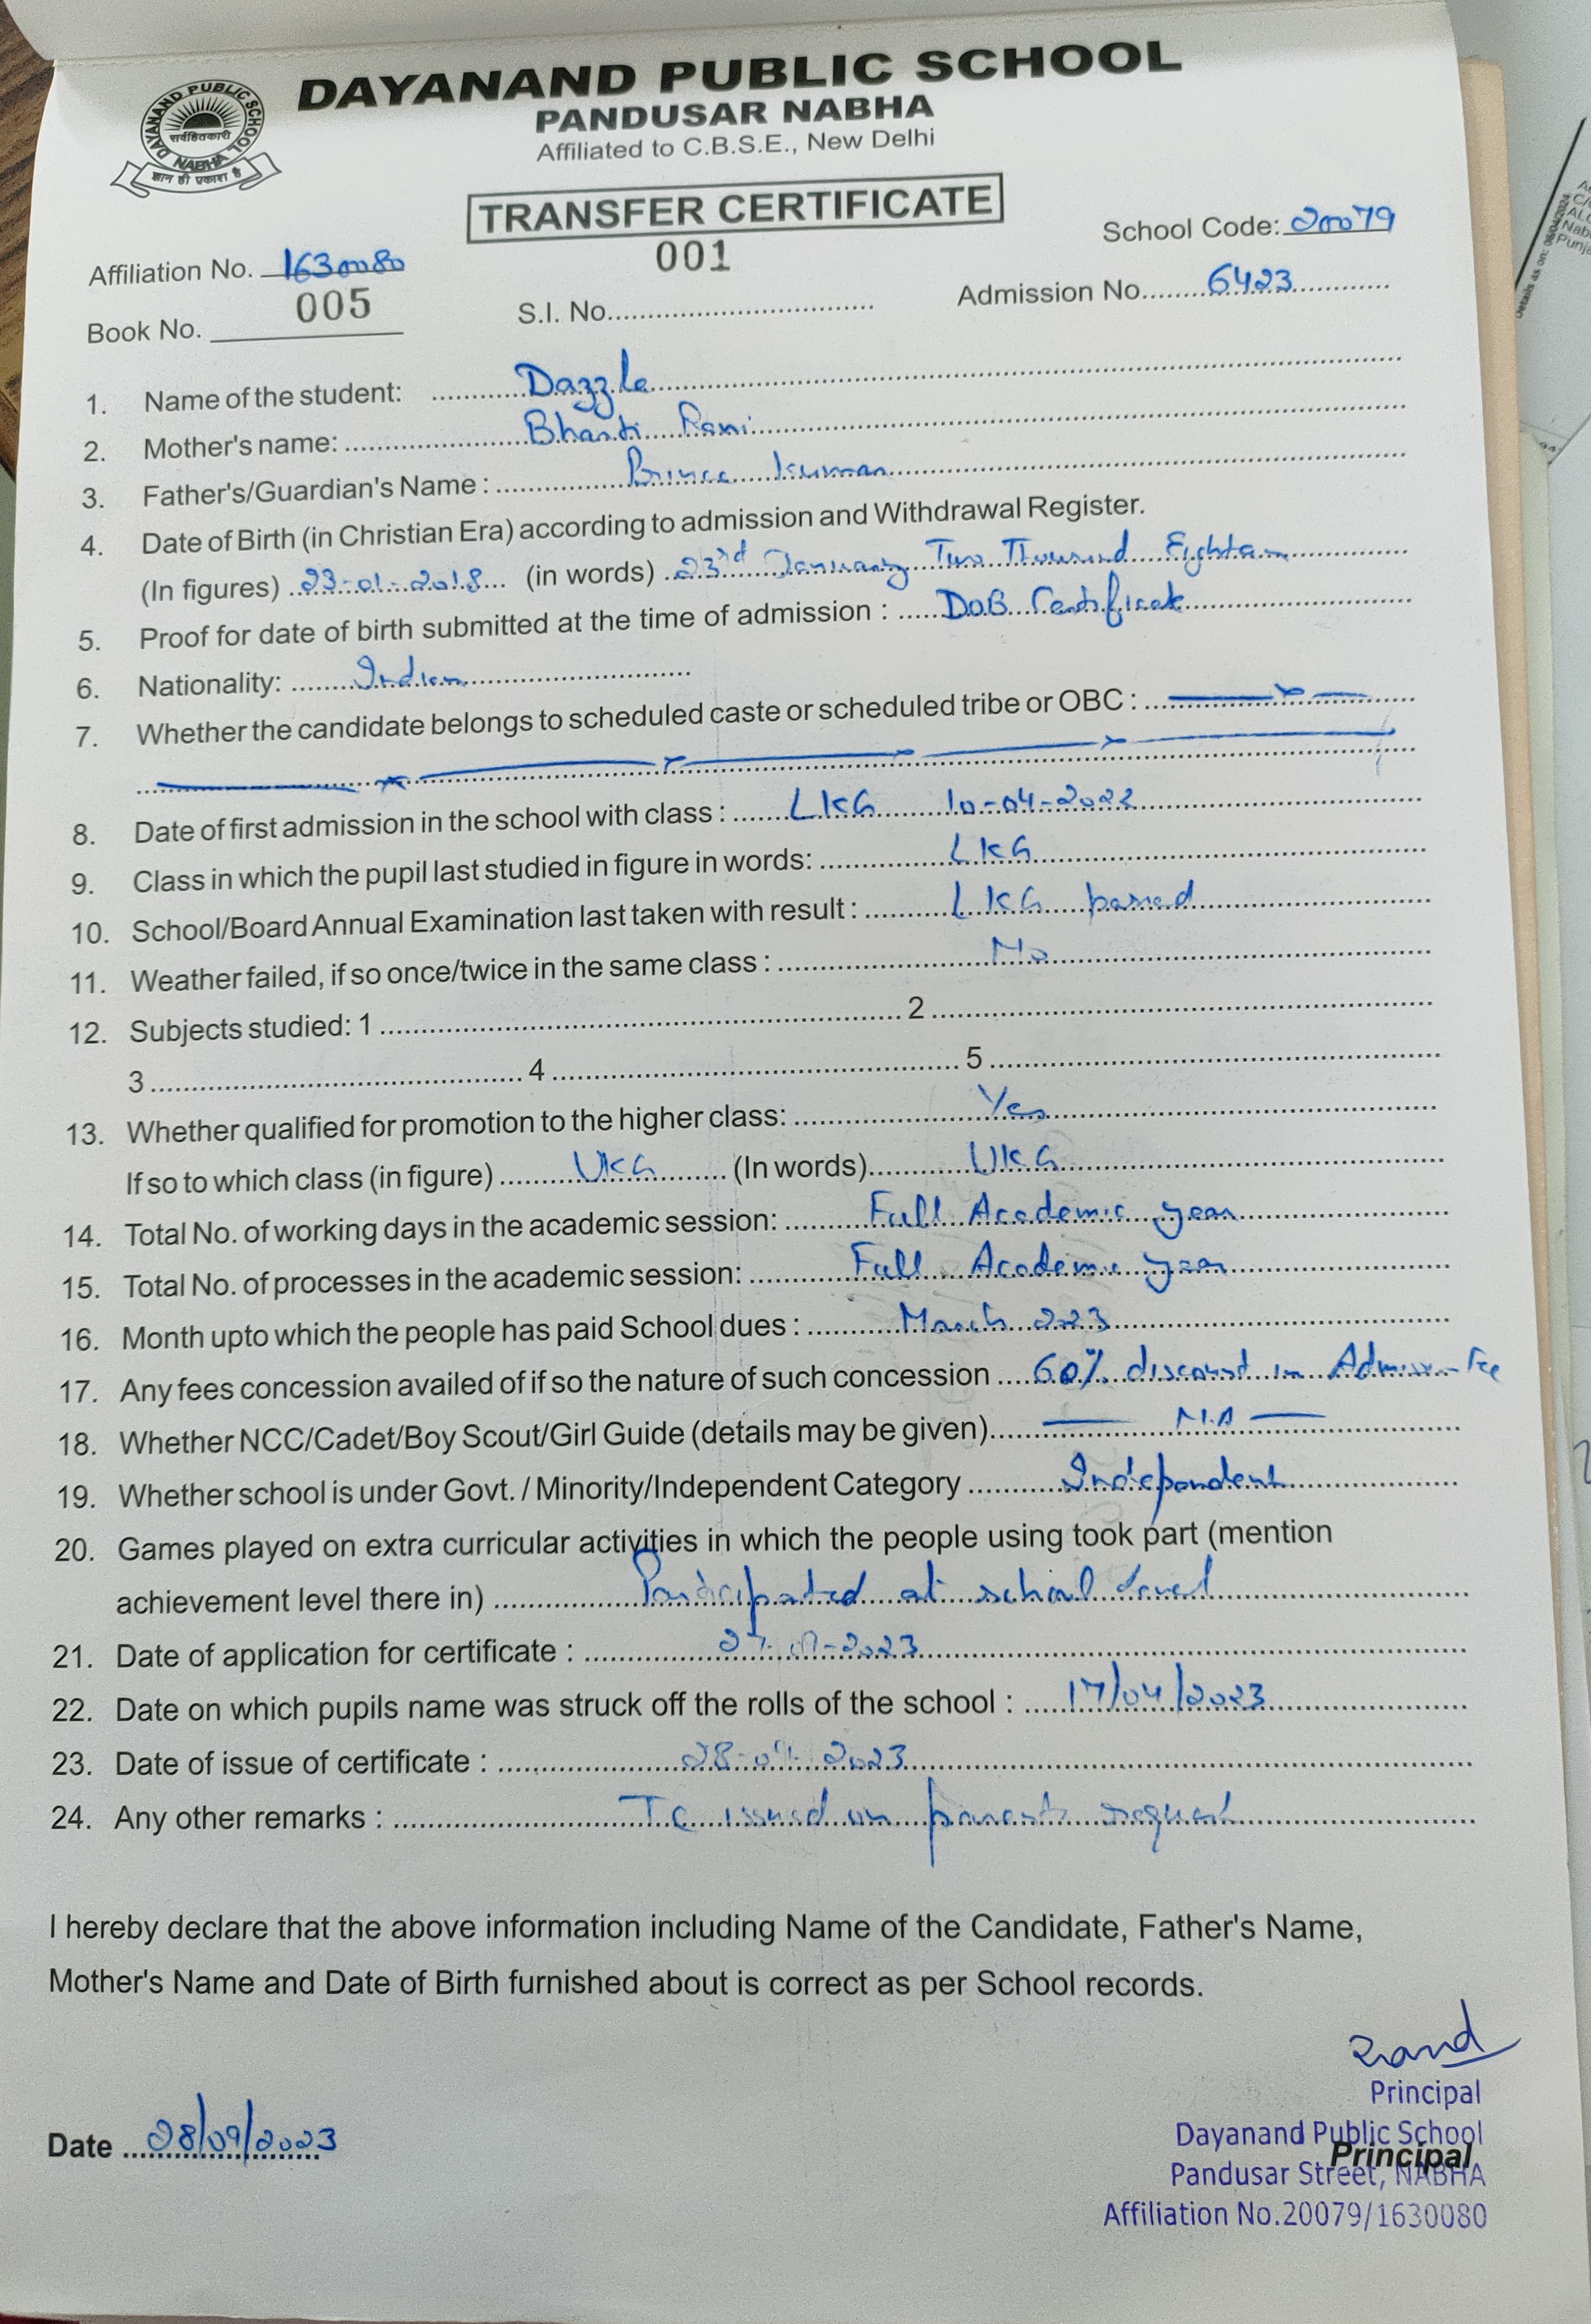 DAYANAND PUBLIC SCHOOL
PANDUSAR NABHA
Affiliated to C.B.S.E., New Delhi
DAYANAND PUBLIC SCHOOL
सर्वहितकारी
NABHA
ज्ञान ही प्रकाश है
TRANSFER CERTIFICATE
001
School Code: 20079
Affiliation No. 1630080
Book No. 005
S.I. No.
Admission No. 6423
1. Name of the student: Dazzle
2. Mother's name: Bharti Rani
3. Father's/Guardian's Name : Prince Kumar
4. Date of Birth (in Christian Era) according to admission and Withdrawal Register.
(In figures) 23-01-2018 (in words) 23rd January Two Thousand Eighteen
5. Proof for date of birth submitted at the time of admission : DOB Certificate
6. Nationality: Indian
7. Whether the candidate belongs to scheduled caste or scheduled tribe or OBC :
8. Date of first admission in the school with class : LKG 10-04-2022
9. Class in which the pupil last studied in figure in words: LKG
10. School/Board Annual Examination last taken with result : LKG passed
11. Weather failed, if so once/twice in the same class : No
12. Subjects studied: 1 2
3 4 5
13. Whether qualified for promotion to the higher class: Yes
If so to which class (in figure) UKG (In words) UKG
14. Total No. of working days in the academic session: Full Academic year
15. Total No. of processes in the academic session: Full Academic year
16. Month upto which the people has paid School dues : March 2023
17. Any fees concession availed of if so the nature of such concession 60% discount in Admission Fee
18. Whether NCC/Cadet/Boy Scout/Girl Guide (details may be given) N.A
19. Whether school is under Govt. / Minority/Independent Category Independent
20. Games played on extra curricular activities in which the people using took part (mention
achievement level there in) Participated at school level
21. Date of application for certificate :
22. Date on which pupils name was struck off the rolls of the school : 17/04/2023
23. Date of issue of certificate :
24. Any other remarks : TC issued on parents request
I hereby declare that the above information including Name of the Candidate, Father's Name,
Mother's Name and Date of Birth furnished about is correct as per School records.
Date 28/09/2023
Principal
Dayanand Public School
Principal
Pandusar Street, NABHA
Affiliation No.20079/1630080